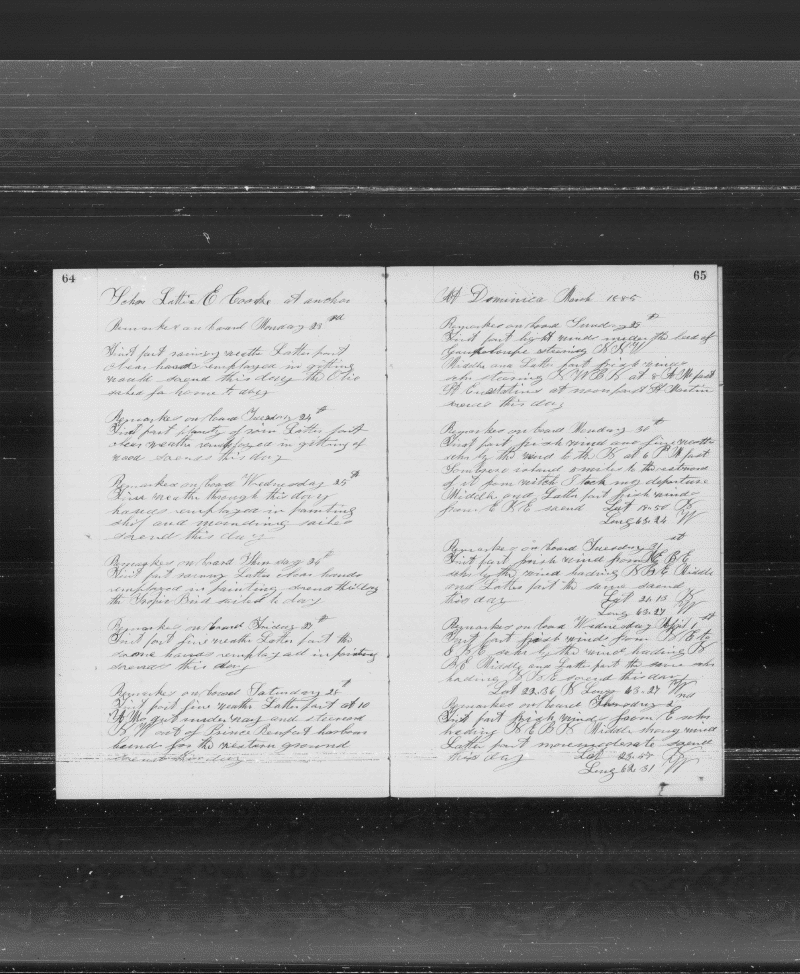 64
Schr Lottie E Cooke at anchor
Remarkes on board Monday 23rd
First part rainsy weathe Latter part
clear hands employed in gitting
wood soend this day the Ohio
sailes for home to day
Remarkes on board Tuesday 24th
First part plenty of rain Latter part
clear weathe employed in getting of
wood soends this day
Remarkes on board Wednesday 25th
Fine weathe through this day
hands employed in painting
ship and mending sailes
soend this day
Remarkes on board Thursday 26th
First part rainey Latter clear hands
employed in painting soend this day
the Tropic Bird sailed to day
Remarkes on board Friday 27th
First part fine weathe Latter part the
same hands employed in painting
soends this day
Remarkes on board Saturday 28th
First part fine weathe Latter part at 10
A M got under way and steered
N W out of Prince Rupert harbour
bound for the western ground
soends this day
65
At Dominica March 1885
Remarkes on board Sunday 29th
First part light winds under the lee of
steering N N W
Middle and Latter part fresh winds
schr steering N W B N at 8 A M past
St Eustatius at noon past St Martin
soends this day
Remarkes on board Monday 30th
First part fresh wind and fine weathe
schr by the wind to the N at 6 P M past
Sombrero island miles to the eastward
of it from witch I tock my departure
Middle and Latter part fresh winds
from E N E soend Lat 18.50 N
Long 63.24 W
Remarkes on board Tuesday 31st
First part fresh wind from E B E
schr by the wind heading N B E Middle
and Latter part the same soend
this day Lat 21.13 N
Long 63.27 W
Remarkes on board Wednesday April 1st
First part fresh winds from to
E B E schr by the wind heading N
B E Middle and Latter part the same schr
heading N B E soend this day
Lat 22.36 N Long 63.27 W
Remarkes on board Thursday 2nd
First part fresh wind from E schr
heading N E B N Middle strong wind
Latter part more moderate soend
this day Lat N
Long 62.31 W